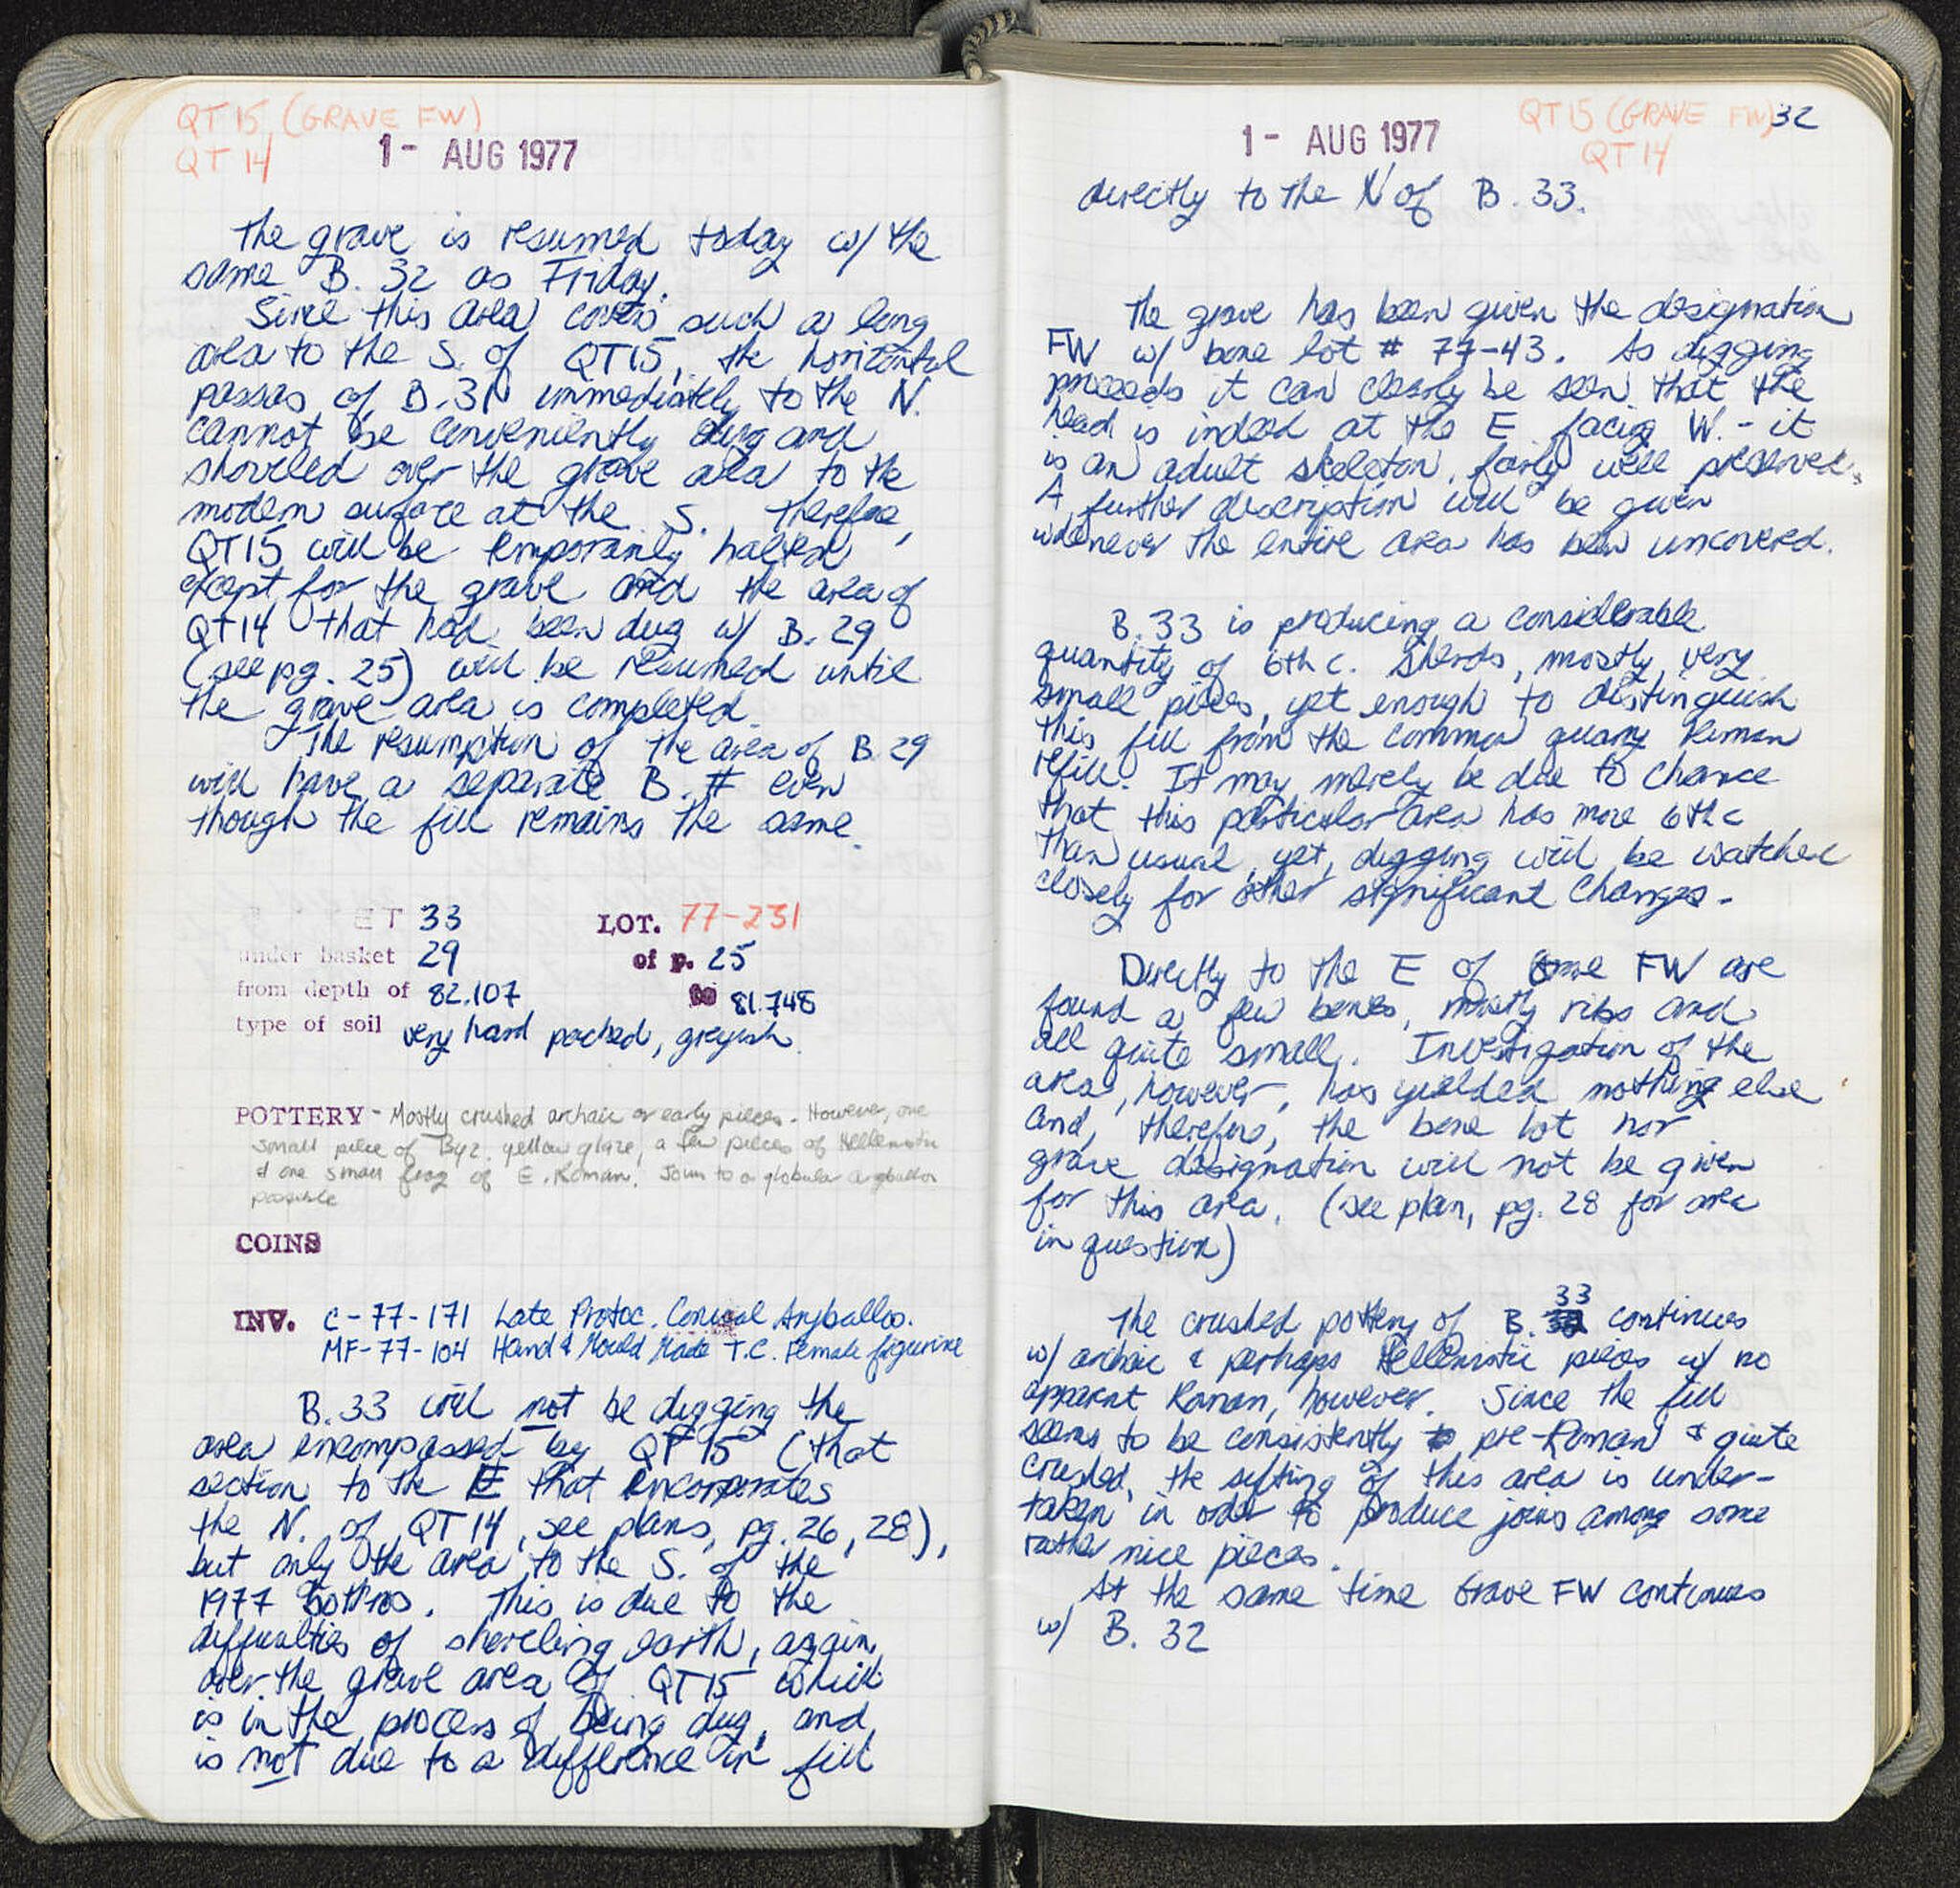 QT 15 (GRAVE FW)
QT 14
1 - AUG 1977
The grave is resumed today w/ the
same B. 32 as Friday.
Since this area covers such a long
area to the S. of QT15, the horizontal
passes of B.31 immediately to the N.
cannot be conveniently dug and
shoveled over the grave area to the
modern surface at the S. Therefore,
QT15 will be temporarily halted
except for the grave and the area of
QT14 that had been dug w/ B. 29
(see pg. 25) will be resumed until
the grave area is completed.
The resumption of the area of B. 29
will have a separate B. # even
though the fill remains the same.
ET 33 LOT. 77-231
under basket 29 of p. 25
from depth of 82.107 to 81.748
type of soil very hard packed, greyish.
POTTERY - Mostly crushed archaic or early pieces. However, one
small piece of Byz. yellow glaze, a few pieces of Hellenistic
& one small frag of E. Roman. Join to a globular aryballos
possible
COINS
INV. C-77-171 Late Protoc. Conical Aryballos.
MF-77-104 Hand & Mould Made T.C. Female figurine
B.33 will not be digging the
area encompassed by QT 15 (that
section to the E that incorporates
the N. of QT14, see plans, pg. 26, 28),
but only the area to the S. of the
1977 bothros. This is due to the
difficulties of shoveling earth, again,
over the grave area of QT15 which
is in the process of being dug, and
is not due to a difference in fill
QT15 (GRAVE FW) 32
QT 14
1 - AUG 1977
directly to the N of B. 33.
The grave has been given the designation
FW w/ bone lot # 77-43. As digging
proceeds it can clearly be seen that the
head is indeed at the E facing W. - it
is an adult skeleton, fairly well preserved.
A further description will be given
whenever the entire area has been uncovered.
B. 33 is producing a considerable
quantity of 6th c. sherds, mostly very
small pieces, yet enough to distinguish
this fill from the common quarry Roman
refill. It may merely be due to chance
that this particular area has more 6th c
than usual, yet, digging will be watched
closely for other significant changes.
Directly to the E of Grave FW are
found a few bones, mostly ribs and
all quite small. Investigation of the
area, however, has yielded nothing else
and, therefore, the bone lot nor
grave designation will not be given
for this area. (see plan, pg. 28 for area
in question)
The crushed pottery of B. 33 continues
w/ archaic & perhaps Hellenistic pieces w/ no
apparent Roman, however. Since the fill
seems to be consistently pre-Roman & quite
crushed, the sifting of this area is under-
taken in order to produce joins among some
rather nice pieces.
At the same time Grave FW continues
w/ B. 32